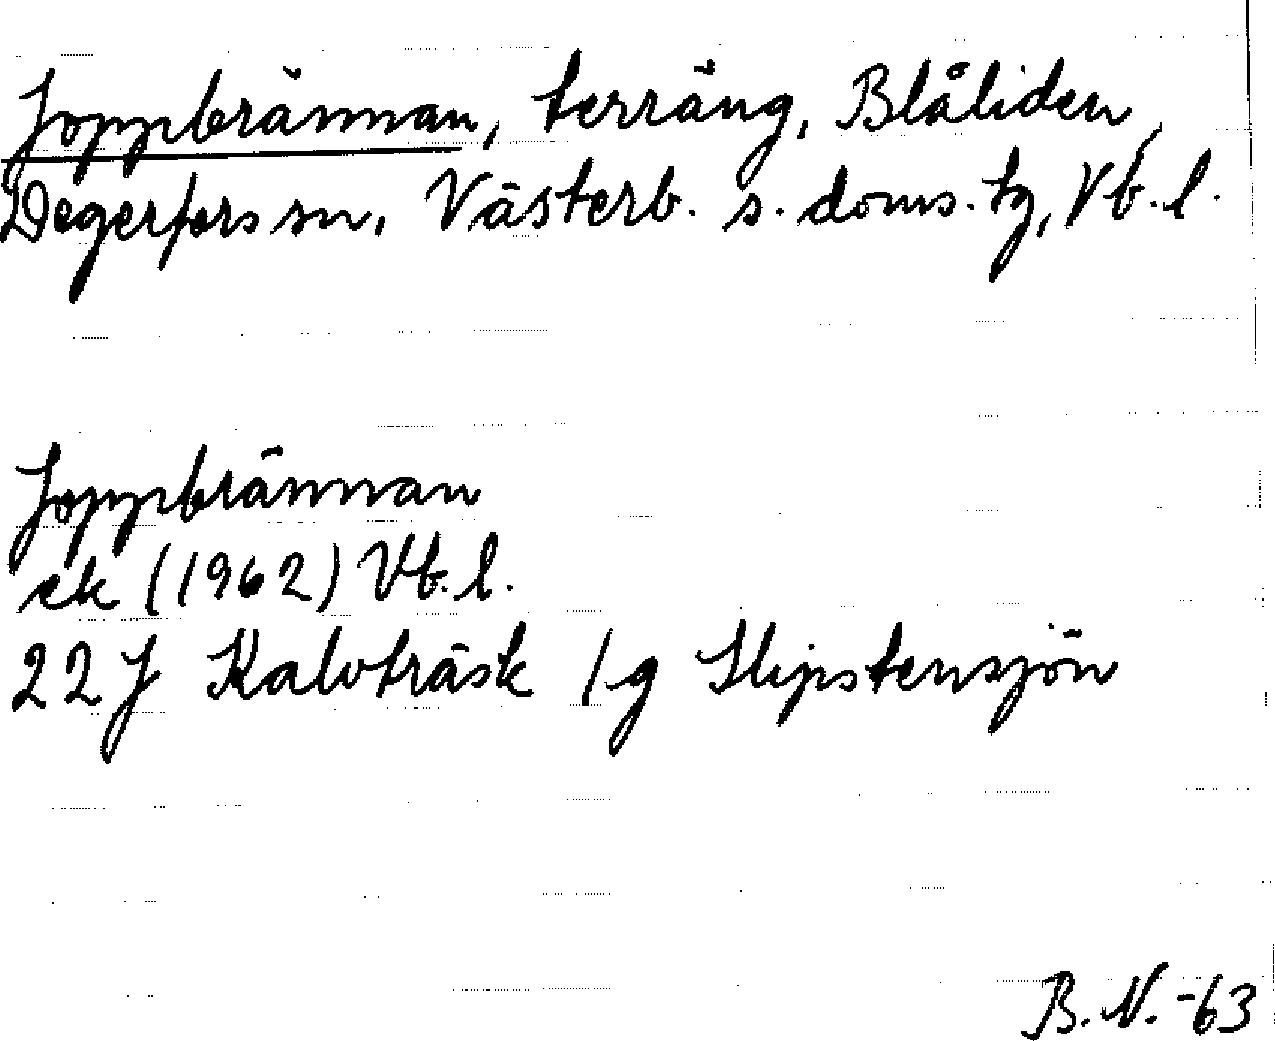 Joppbrännan, terräng, Blåliden,
Degerfors sn, Västerb. s. doms. tg, Vb. l.
Joppbrännan
ek (1962) Vb. l.
22 J Kalvträsk 1 g Slipstensjön
B. N. -63